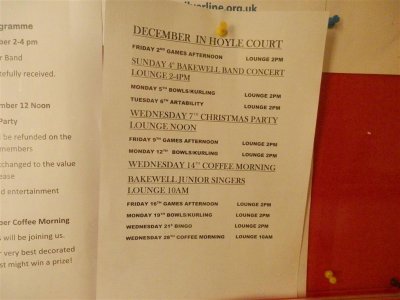 ilverline.org.uk
ogramme
ber 2-4 pm
r Band
tefully received.
mber 12 Noon
Party
l be refunded on the
members
xchanged to the value
ease
d entertainment
ber Coffee Morning
s will be joining us.
r very best decorated
st might win a prize!
DECEMBER IN HOYLE COURT
FRIDAY 2ND GAMES AFTERNOON LOUNGE 2PM
SUNDAY 4th BAKEWELL BAND CONCERT
LOUNGE 2-4PM
MONDAY 5TH BOWLS/KURLING LOUNGE 2PM
TUESDAY 6TH ARTABILITY LOUNGE 2PM
WEDNESDAY 7TH CHRISTMAS PARTY
LOUNGE NOON
FRIDAY 9TH GAMES AFTERNOON LOUNGE 2PM
MONDAY 12TH BOWLS/KURLING LOUNGE 2PM
WEDNESDAY 14TH COFFEE MORNING
BAKEWELL JUNIOR SINGERS
LOUNGE 10AM
FRIDAY 16TH GAMES AFTERNOON LOUNGE 2PM
MONDAY 19TH BOWLS/KURLING LOUNGE 2PM
WEDNESDAY 21ST BINGO LOUNGE 2PM
WEDNESDAY 28TH COFFEE MORNING LOUNGE 10AM